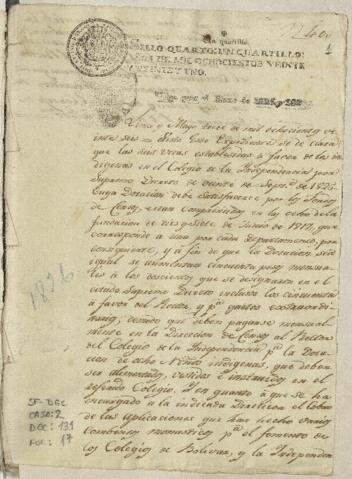 1
Un quartillo
SELLO QUARTO: UN QUARTILLO:
AÑOS DE MIL OCHOCIENTOS VEINTE
Y VEINTIUNO.
Lima y Mayo trece de mil ochocientos y
inte seis = Visto Este Expediente se declara
que las seis vecas establecidas a favor de los in
digenas en el Colegio de la Independencia por
Supremo Decreto de veinte de Sept.e de 1825
cuya Dotacion debe Satisfacerse por los fondos
de Censos, estan comprendidas en las ocho de la
fundacion de diez y siete de Junio de
corresponde a una por cada departamento; por
consiguiente, y a fin de que la Dotacion sea
egual se aumentara cincuenta pesos mensua
les a los doscientos que se designaron en el
citado Supremo Decreto inclusos los cincuenta
a favor del Rector, y p.a gastos extraordi
narios; deviendo que deben pagarse mensual
mente en la Direccion de Censos al Rector
del Colegio de la Independencia p.a la Dota
cion de ocho Niños indigenas, que deben
ser alimentados, vestidos e instruidos en el
referido Colegio. Y en quanto a que se ha
encargado a la indicada Direccion el cobro
de las aplicaciones que han hecho varios
combentos monasticos p.a el fomento de
los Colegios de Bolivar, y la Independen
1826
SF-DGC
CAJA: 2
DOC: 131
FOL: 17